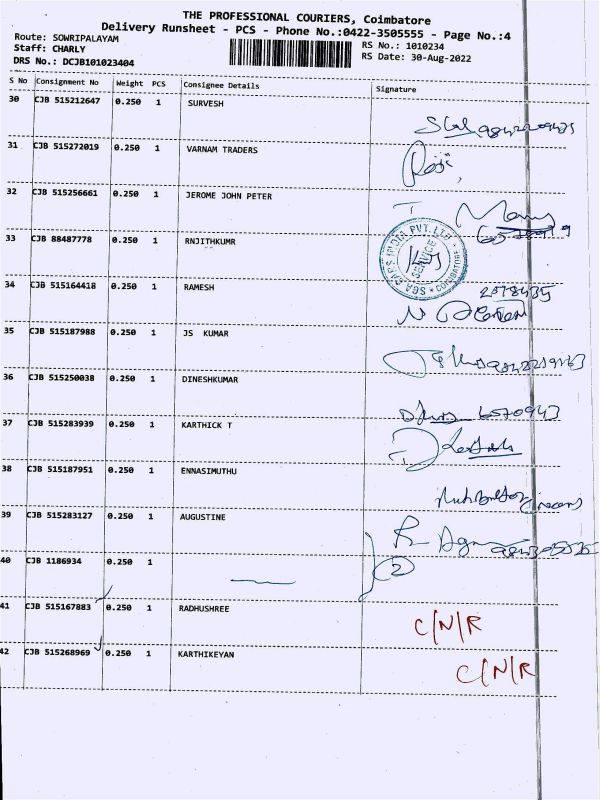 THE PROFESSIONAL COURIERS, Coimbatore
Delivery Runsheet - PCS - Phone No.:0422-3505555 - Page No.:4
Route: SOWRIPALAYAM
RS No.: 1010234
Staff: CHARLY
RS Date: 30-Aug-2022
DRS No.: DCJB101023404
S No Consignment No Weight PCS Consignee Details Signature
30 CJB 515212647 0.250 1 SURVESH
31 CJB 515272019 0.250 1 VARNAM TRADERS
32 CJB 515256661 0.250 1 JEROME JOHN PETER
33 CJB 88487778 0.250 1 RNJITHKUMR
34 CJB 515164418 0.250 1 RAMESH
35 CJB 515187988 0.250 1 JS KUMAR
36 CJB 515250038 0.250 1 DINESHKUMAR
37 CJB 515283939 0.250 1 KARTHICK T
38 CJB 515187951 0.250 1 ENNASIMUTHU
39 CJB 515283127 0.250 1 AUGUSTINE
40 CJB 1186934 0.250 1 2
41 CJB 515167883 0.250 1 RADHUSHREE C/N/R
42 CJB 515268969 0.250 1 KARTHIKEYAN C/N/R